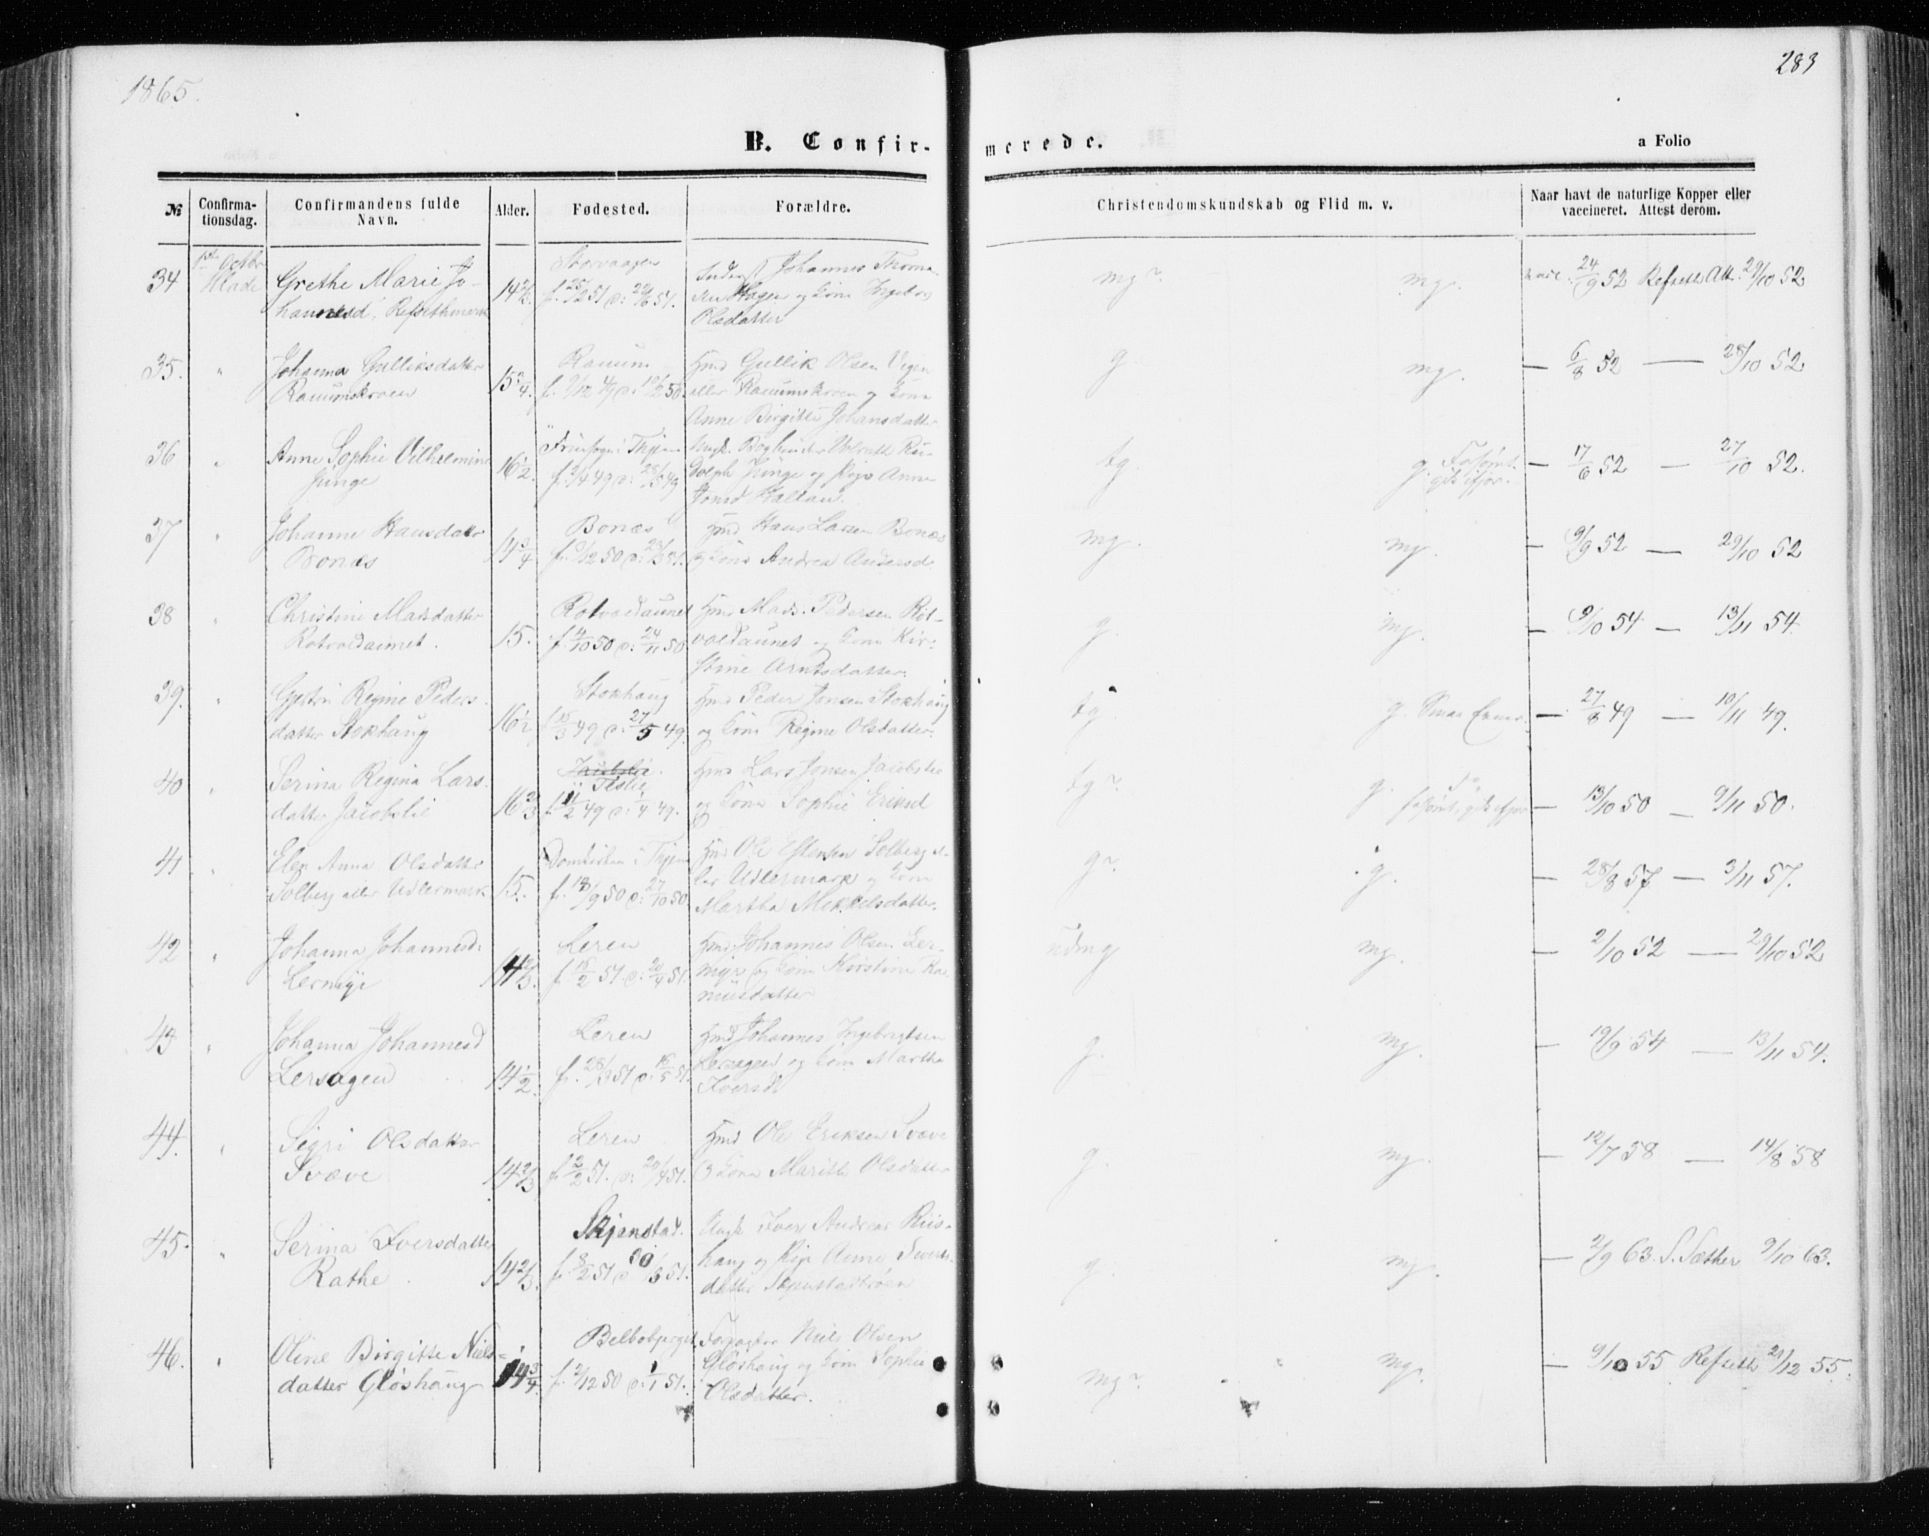 1865.
283
B. Confir-
merede.
a Folio
№
Confirma-
tionsdag.
Confirmandens fulde
Navn.
Alder.
Fødested.
Forældre.
Christendomskundskab og Flid m. v.
Naar havt de naturlige Kopper eller
vaccineret. Attest derom.
34
1ste Octbr
Hlade
Grethe Marie Jo-
hannesd.
14 2/3
f. 25/2 51 d:
Johannes Thoma-
sen Hagen og Kone Ingebor
Olsdatter
mg
mg.
24/9 52 Refseth Att. 29/10 52
35.
"
Johanna Gulliksdatter
Ranumskroen
15 3/4.
Ranum
Hmd Gullik Olsen Vegen
eller Ranumskroen og Kone
Anne Birgitte Johansdatter
g.
mg.
— 6/8 52 — 28/10 52
36
"
Anne Sophie Vilhelmine
Junge
16 1/2.
f. 2/4 49 d: 28/5 49
Ungk. Bogbinder Ru-
dolph Junge og Pige Anne
tg
g.
— 17/6 52 — 27/10 52.
37
"
Johanne Hansdatr
Bonæs
14 3/4
Bonæs
Hmd Hans Larsen Bonæs
og Kone Andrea Andersd.
mg.
mg.
— 9/9 52 — 29/10 52
38
"
Christine Madsdatter
Rotvoldaunet.
15.
Rotvoldaunet
f. 4/10 50 d: 24/11 50
Hmd Mads Pedersen Rot-
voldaunet og Kone Kir-
stine Arntsdatter.
g.
mg.
— 9/10 54 — 13/11 54.
39.
"
Regine Peders-
datter Stokhaug
16 1/2
Stokhaug
f. 15/3 49 d: 27/5 49.
Hmd Peder Jonsen Stokhaug
og Kone Regine Olsdatter.
tg.
g.
— 27/8 49 — 10/11 49.
40
"
Serina Regina Lars-
datter Jacobslie
16 2/3
f. 11/2 49 d: 1/4 49.
Hmd Lars Jonsen Jacobslie
og Kone Sophie Eriksd
tg
g.
— 13/10 50 — 9/11 50.
41
"
Elen Anna Olsdatter
Solberg eller Udlermark
15.
Domkirken i Thjem
f. 18/9 50 d: 27/10 50
Hmd Ole Estensen Solberg el-
ler Udlermark og Kone
Martha Mikkelsdatter.
g
g.
— 28/8 57 — 3/11 57.
42
"
Johanna Johannesd:
Lermye
14 2/3.
Leren
f. 15/2 51 d: 20/4 51.
Hmd Johannes Olsen Ler-
mye og Kone Kirstine Ra-
musdatter
udmg
mg.
— 2/10 52 — 29/10 52
43
"
Johanna Johannesd
Lersagen
14 1/2
Leren
f. 28/3 51 d: 18/5 51.
Hmd Johannes Ingebrigtsen
Lersagen og Kone Martha
Iversdt
g.
mg.
— 19/9 54 — 13/11 54.
44.
"
Sigri Olsdatter
Svæve
14 2/3
Leren
f. 2/2 51. d: 20/4 51.
Hmd Ole Eriksen Svæve
og Kone Marith Olsdatter
g.
mg.
— 12/7 58 — 14/8 58
45.
"
Serina Iversdatter
Rathe
14 2/3.
Skjenstad.
Ungk. Iver Andreas Riis-
haug og Pige Anne Siverts-
datter
g.
mg.
— 2/9 63. S. Sæther 9/10 63.
46.
"
Oline Birgitte Niels-
datter Gløshaug
14 3/4
f. 2/12 50 d: 1/1 51.
Forpagter Niels Olsen
Gløshaug og Kone Sophie
Olsdatter.
mg
mg.
— 9/10 55 Refseth 21/12 55.